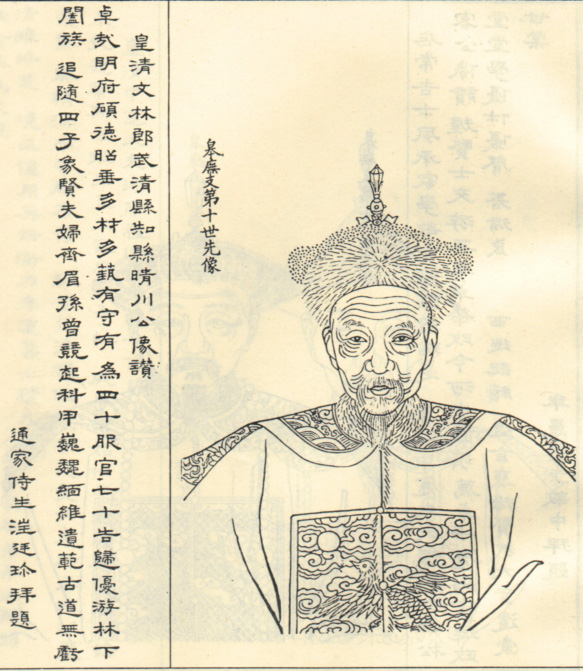 皐廡支第十世先像
皇清文林郎武清縣知縣晴川公像讚
卓哉明府碩德昭垂多材多藝有守有為四十服官七十告歸優游林下
闔族追隨四子象賢夫婦齊眉孫曾競起科甲巍巍緬維遺範古道無虧
通家侍生汪廷珍拜題